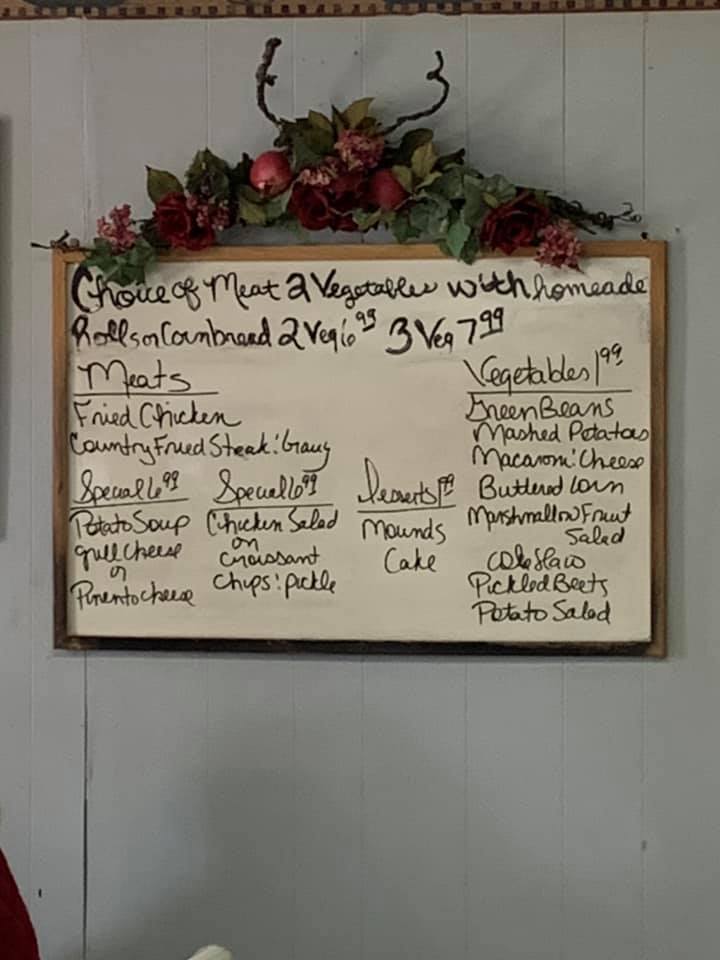 Choice of Meat 2 Vegetables with homeade
Rolls or Cornbread 2 Veg 6 99 3 Veg 7 99
Meats
Fried Chicken
Country Fried Steak : Gravy
Special 6 99
Potato Soup
grill Cheese
or
Pimento cheese
Special 6 99
Chicken Salad
on
Croissant
Chips : pickle
Desserts 1 99
Mounds
Cake
Vegetables 1 99
Green Beans
Mashed Potatoes
Macaroni : Cheese
Buttered Corn
Marshmallow Fruit
Salad
Cole Slaw
Pickled Beets
Potato Salad